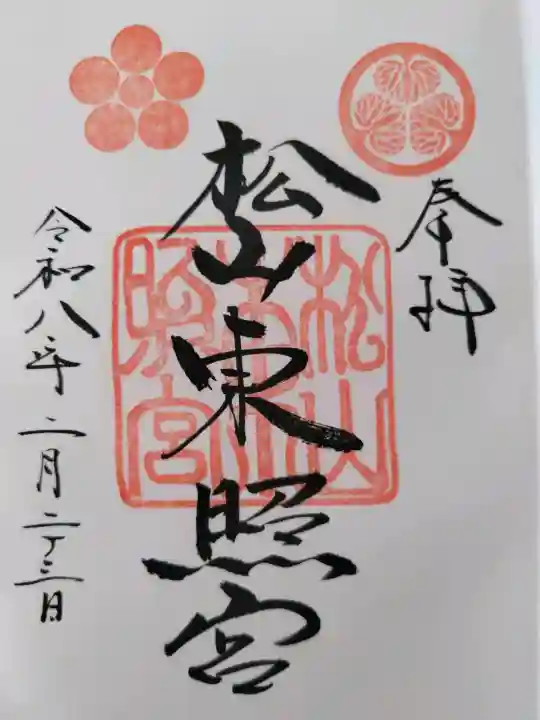 奉拝
松山東照宮
松山東照宮
令和八年二月二十三日